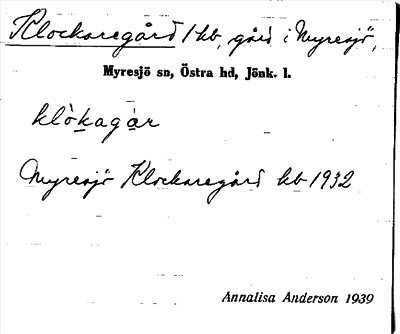 Klockaregård 1 kb, gård i Myresjö,
Myresjö sn, Östra hd, Jönk. l.
klòkagàr
Myresjö Klockaregård kb 1932
Annalisa Anderson 1939